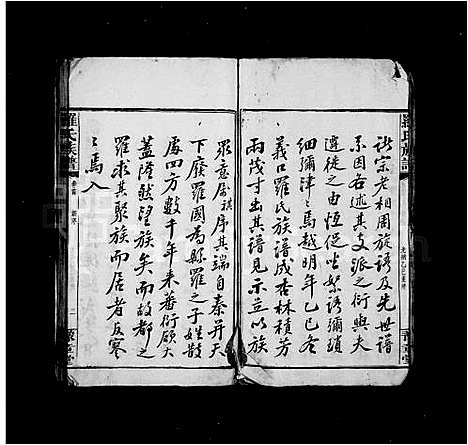 羅氏族譜
諸宗老相周旋語及先世譜
系因各述其支派之衍與夫
遷徙之由恆促坐絮語彌瑣
細彌津々焉越明年乙巳冬
義口羅氏族譜成杏林積芳
兩茂才出其譜見示並以族
眾意屬袟序其端自秦并天
下廢羅國為縣羅之子姓散
處四方數千年來蕃衍碩大
蓋隆然望族矣而故都之
羅求其聚族而居者反寥
々焉入
羅氏族譜